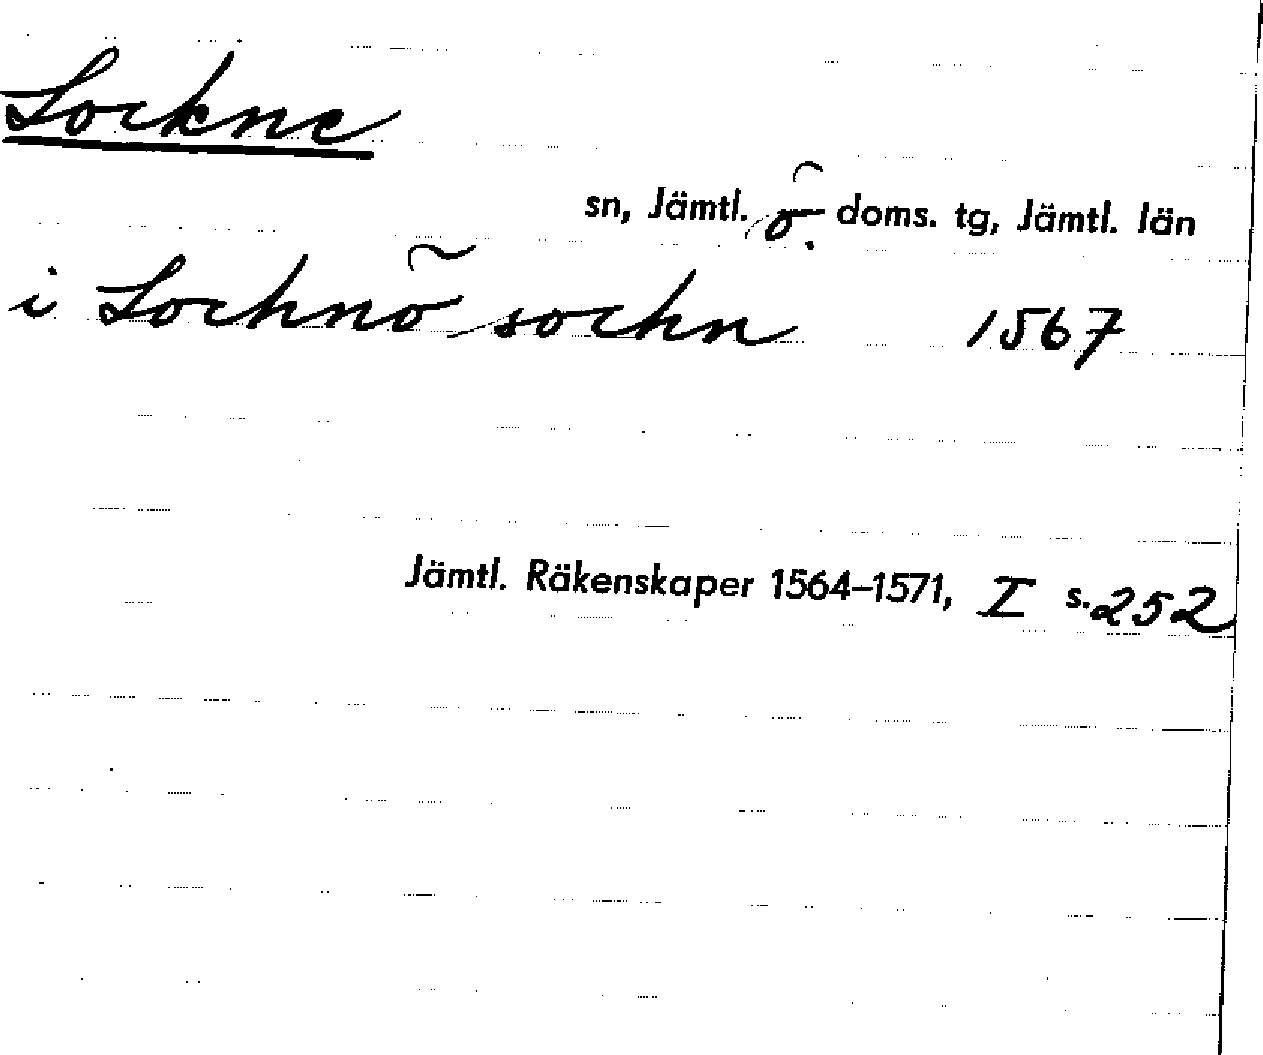 Lockne
sn, Jämtl. ö. doms. tg, Jämtl. län
i Locknö sockn 1567
Jämtl. Räkenskaper 1564–1571, I s. 252